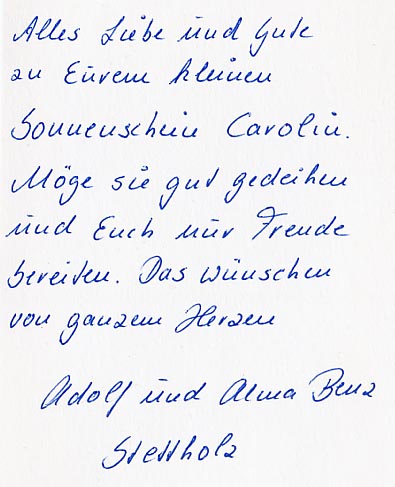 Alles Liebe und Gute
zu Eurem kleinen
Sonnenschein Carolin.
Möge sie gut gedeihen
und Euch nur Freude
bereiten. Das wünschen
von ganzem Herzen
Adolf und Alma Benz
Stettholz